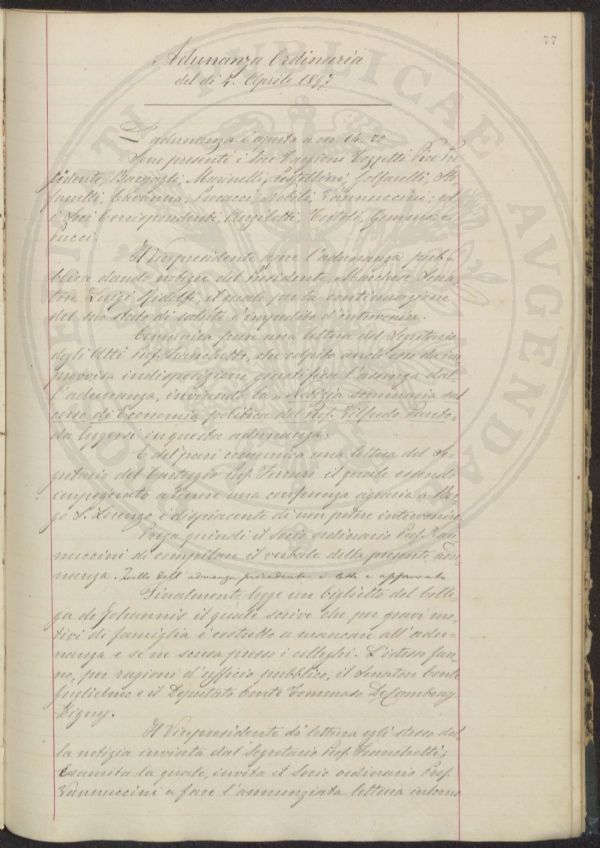 77
Adunanza Ordinaria
del dì 4. Aprile 1897
L'adunanza è aperta a ore 14.20
Sono presenti i Soci Vice Pre
sidente, Bargagli, Marinelli, Golfarelli, Ste
fanelli, Pucacci, Vannuccini; ed
i Soci Corrispondenti,
rucci.
Il Vicepresidente apre l'adunanza pub-
blica dando notizie del Presidente Marchese Sena-
tore Luigi Ridolfi, il quale per la continuazione
del suo stato di salute è impedito d'intervenire.
Comunica pure una lettera del Segretario
degli Atti Prof. Franchetti, che colpito anch'esso da im
provvisa indisposizione giustifica l'assenza dal-
l'adunanza, inviando la notizia sommaria sul
corso di Economia politica del Prof. Vilfredo Pareto
da leggersi in questa adunanza.
E del pari comunica una lettera del Se-
gretario del Carteggio Prof. Ferrari il quale essendo
impegnato a tenere una conferenza agraria a Bor
go S. Lorenzo è dispiacente di non potere intervenire
Prega quindi il Socio ordinario Prof. Van
nuccini di compilare il verbale della presente adu
nanza. Quello dell'adunanza precedente è letto e approvato
Finalmente legge un biglietto del Colle
ga de Johannis il quale scrive che per gravi mo-
tivi di famiglia è costretto a mancare all'adu-
nanza e se ne scusa presso i colleghi. L'istesso fan
no, per ragioni d'ufficio pubblico, il Senatore Conte
Guglielmo e il Deputato Conte Tommaso De Cambray
Digny.
Il Vicepresidente dà lettura egli stesso del
la notizia inviata dal Segretario Prof. Franchetti;
esaurita la quale, invita il Socio ordinario Prof.
Vannuccini a fare l'annunziata lettura intorno